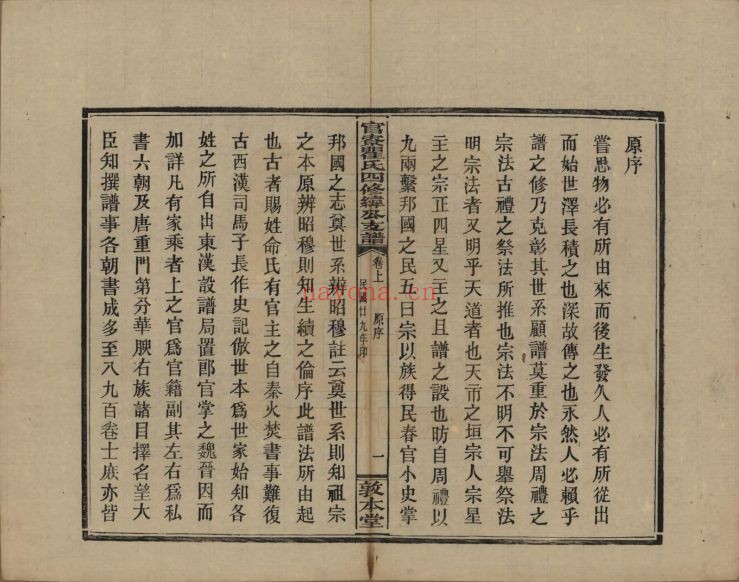 原序
嘗思物必有所由來而後生發久人必有所從出
而始世澤長積之也深故傳之也永然人必賴乎
譜之修乃克彰其世系顧譜莫重於宗法周禮之
宗法古禮之祭法所推也宗法不明不可舉祭法
明宗法者又明乎天道者也天帀之垣宗人宗星
主之宗正四星又主之且譜之設也昉自周禮以
九兩繫邦國之民五曰宗以族得民春官小史掌
官寮瞿氏四修緯公支譜
卷上
原序
民國廿九年印
一
敦本堂
邦國之志奠世系辨昭穆註云奠世系則知祖宗
之本原辨昭穆則知生續之倫序此譜法所由起
也古者賜姓命氏有官主之自秦火焚書事難復
古西漢司馬子長作史記倣世本爲世家始知各
姓之所自出東漢設譜局置郎官掌之魏晉因而
加詳凡有家乘者上之官爲官籍副其左右爲私
書六朝及唐重門第分華腴右族諸目擇名望大
臣知撰譜事各朝書成多至八九百卷士庶亦皆
nayona.cn